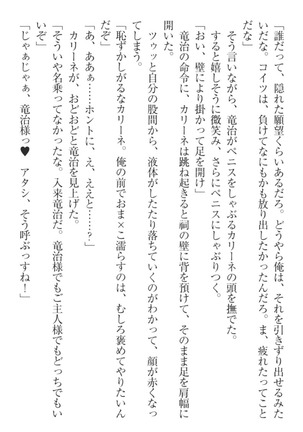 「誰だって、隠れた願望くらいあるだろ。どうやら俺は、それを引きずり出せるみた
いだな。コイツは、負けてなにもかも放り出したかったんだろ。ま、疲れたってこと
だな」
　そう言いながら、竜治がペニスをしゃぶるカリーネの頭を撫でた。
　すると嬉しそうに微笑み、さらにペニスにしゃぶりつく。
「おい、壁により掛かって足を開け」
　竜治の命令に、カリーネは跳ね起きると祠の壁に背を預けて、そのまま足を肩幅に
開いた。
　ツゥッと自分の股間から、液体がしたたり落ちていくのがわかって、顔が赤くなっ
てしまう。
「恥ずかしがるなカリーネ。俺の前でおま×こ濡らすのは、むしろ褒めてやりたいん
だぞ」
「あ、ああぁ……ホントに、え、ええと……？」
　カリーネが、おどおどと竜治を見上げた。
「そういや名乗ってなかったな。入来竜治だ。竜治様でもご主人様でもどっちでもい
いぞ」
「じゃぁじゃぁ、竜治様っ♥　アタシ、そう呼ぶっすね！」